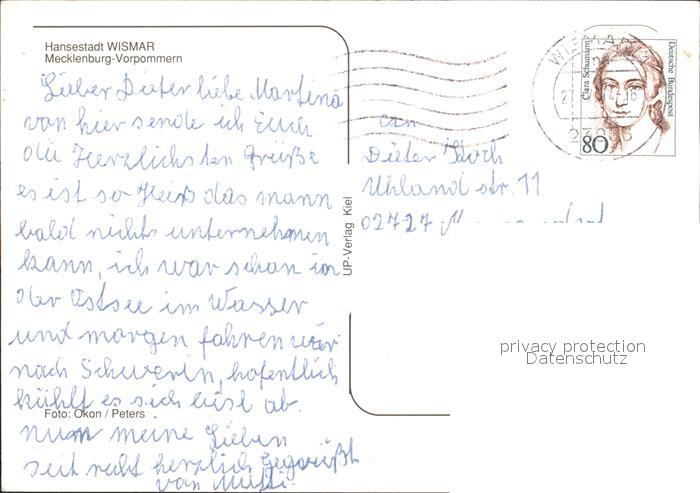 Hansestadt WISMAR
Mecklenburg-Vorpommern
Lieber Dieter liebe Martina
von hier sende ich Euch
die Herzlichsten Grüße
es ist so Heiß das mann
bald nichts unternehmen
kann, ich war schon in
der Ostsee im Wasser
und morgen fahren wir
nach Schwerin, hofentlich
kühlt es sich ab.
Foto: Okon / Peters
nun meine Lieben
seit recht herzlich Gegrüßt
von Mutti.
UP-Verlag Kiel
WISMAR
Clara Schumann
Deutsche Bundespost
80
an
Dieter Koch
Uhland str. 11
02727
privacy protection
Datenschutz